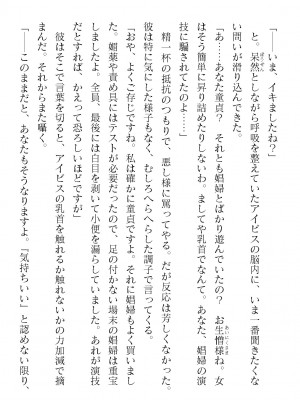 「いま、イキましたね？」
と。呆然としながら呼吸を整えていたアイビスの脳内に、いま一番聞きたくな
い問いが滑り込んできた。
「あ……あなた童貞？　それとも娼婦とばかり遊んでいたの？　お生憎様ね。女
はそう簡単に昇り詰めたりしないわ。ましてや乳首でなんて。あなた、娼婦の演
技に騙されてたのよ」
精一杯の抵抗のつもりで、悪し様に罵ってやる。だが反応は芳しくなかった。
彼は特に気にした様子もなく、むしろへらへらした調子で言ってのける。
「おや、よくご存じですね。私は確かに童貞ですよ。それに娼婦もよく買いまし
た。媚薬や責め具にはテストが必要だったので、足の付かない場末の娼婦は重宝
しましたよ。全員、最後には白目を剥いて小便を漏らしていました。あれが演技
だとすれば、かえって恐ろしいほどですが」
彼はそこで言葉を切ると、アイビスの乳首を触れるか触れないかの力加減で摘
まんだ。それからまた囁く。
「――このままだと、あなたもそうなりますよ。『気持ちいい』と認めない限り、